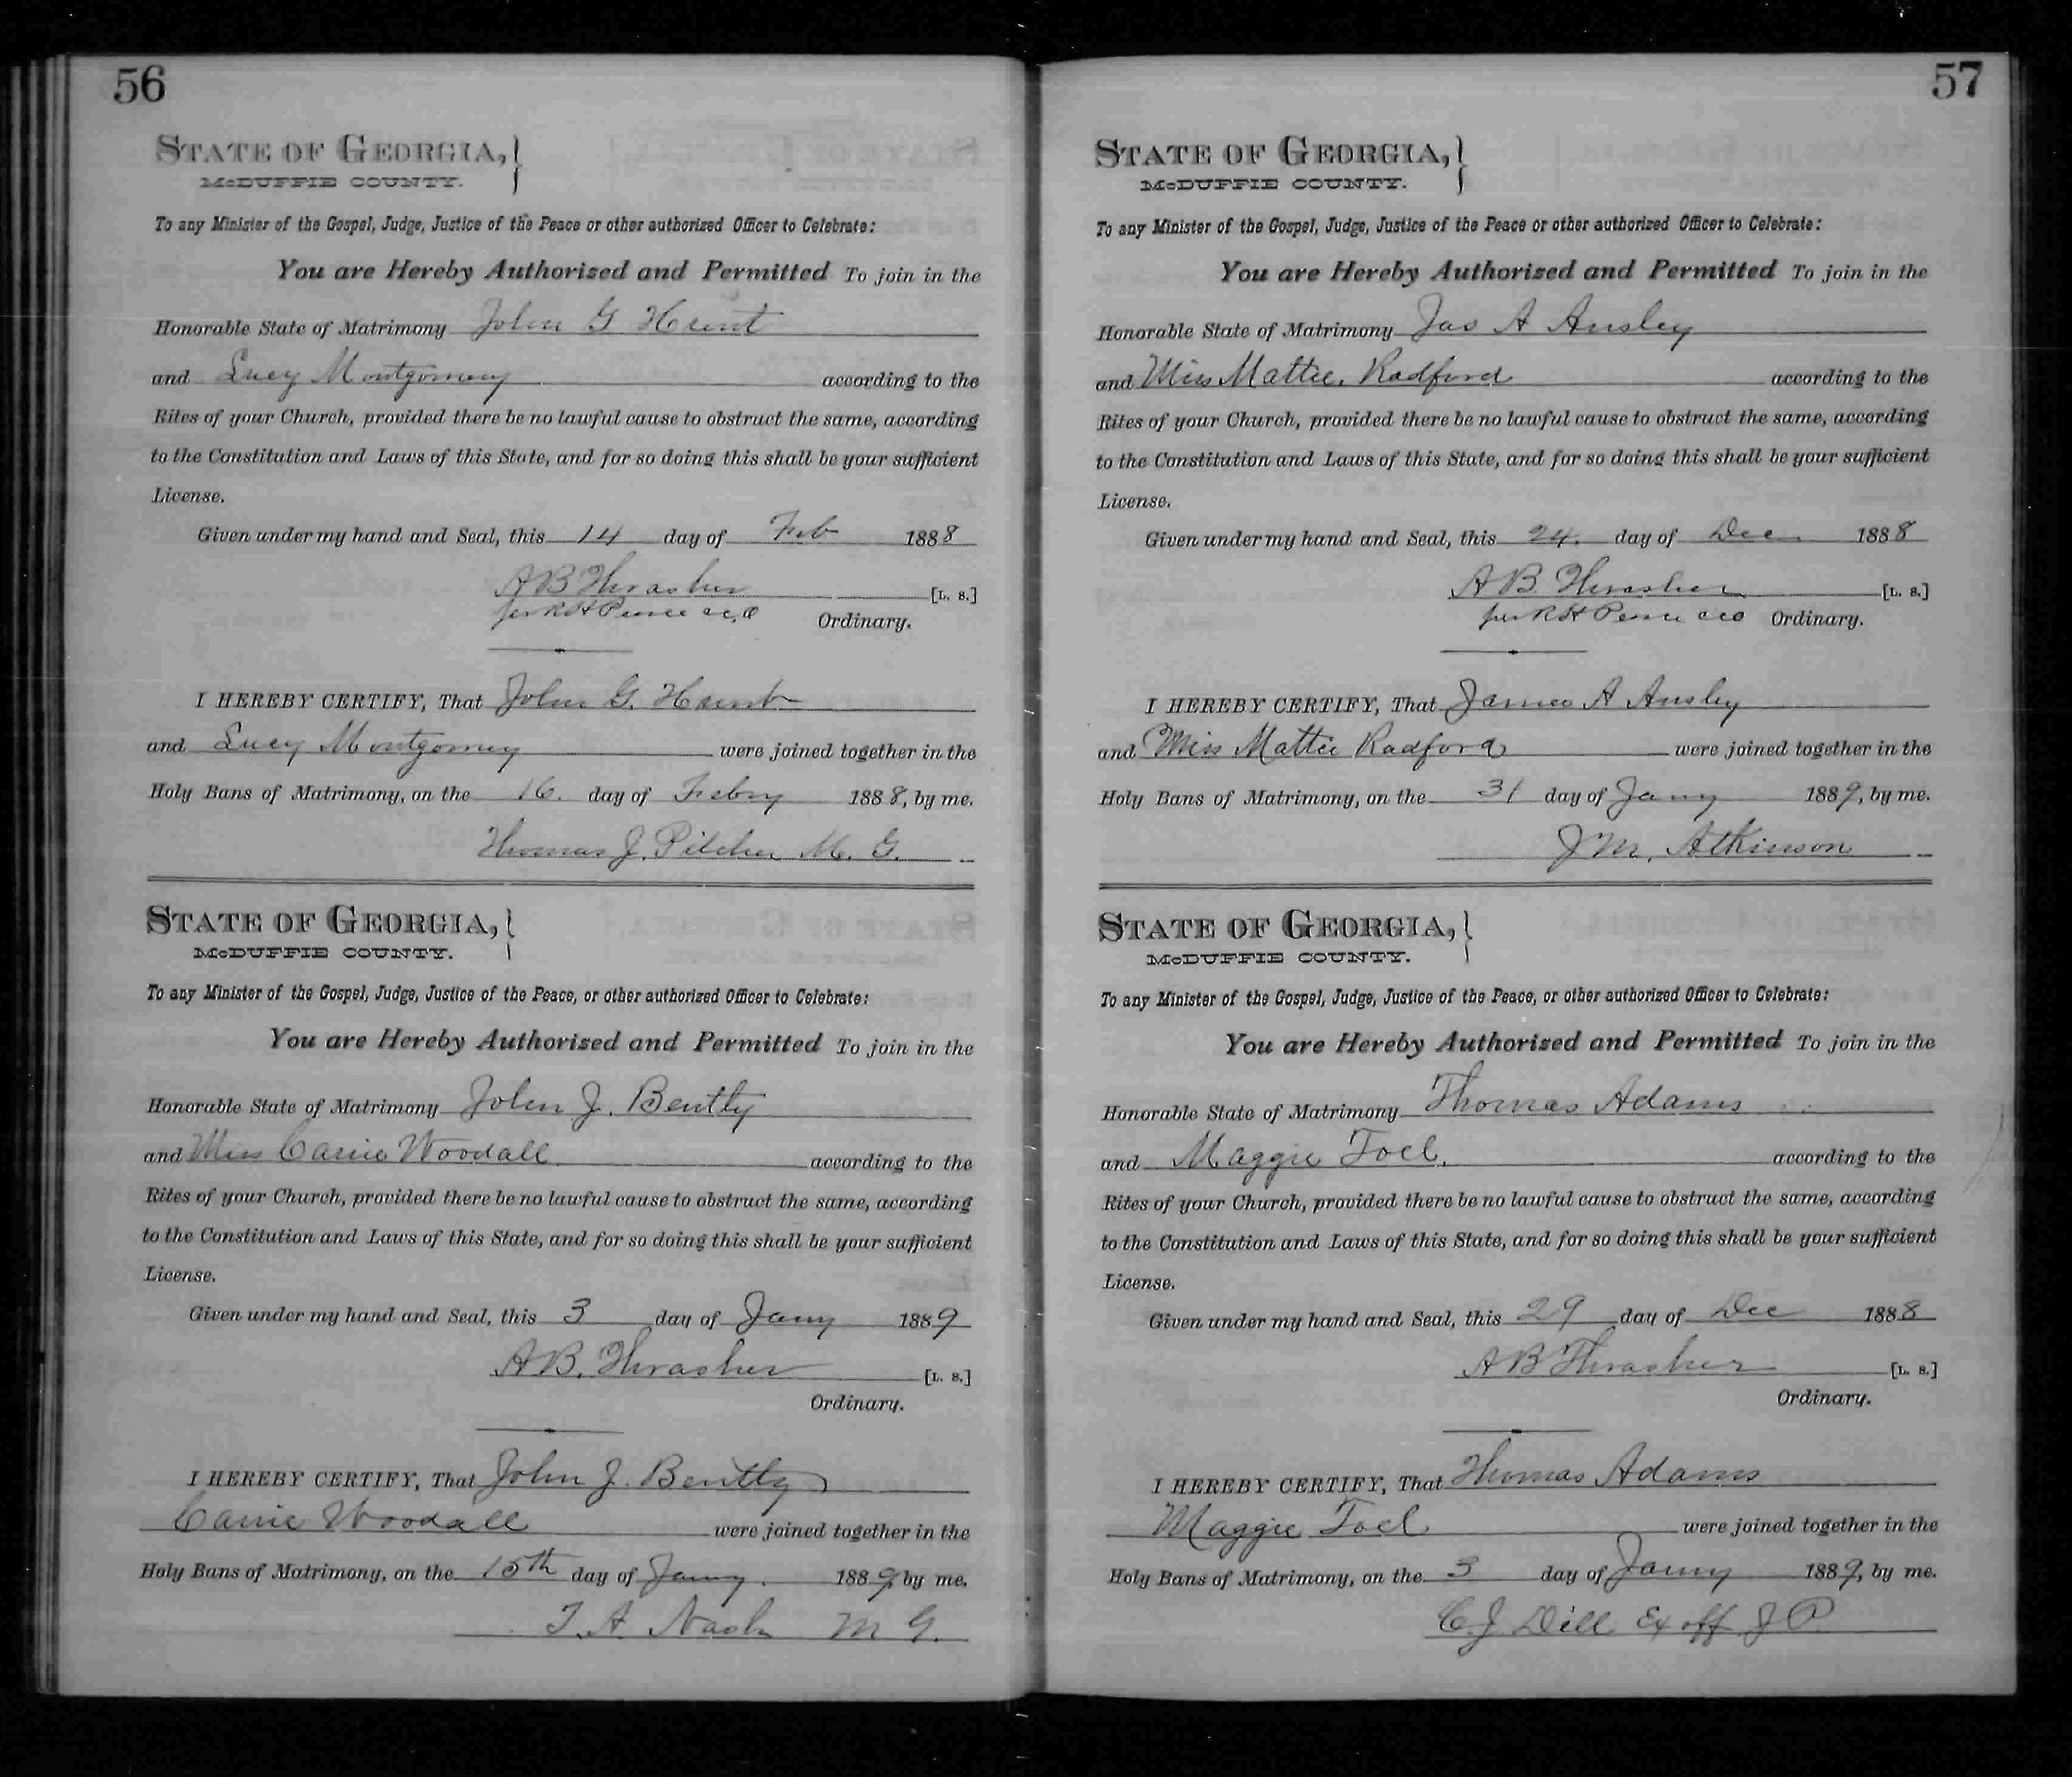 56
STATE OF GEORGIA,
McDUFFIE COUNTY.
To any Minister of the Gospel, Judge, Justice of the Peace or other authorized Officer to Celebrate:
You are Hereby Authorized and Permitted To join in the
Honorable State of Matrimony John G Hunt
and Lucy Montgomery according to the
Rites of your Church, provided there be no lawful cause to obstruct the same, according
to the Constitution and Laws of this State, and for so doing this shall be your sufficient
License.
Given under my hand and Seal, this 14 day of Feb 1888
A B Thrasher [L. S.]
per R H Pearce Ordinary.
I HEREBY CERTIFY, That John G. Hunt
and Lucy Montgomery were joined together in the
Holy Bans of Matrimony, on the 16. day of Febry 1888, by me.
Thomas J. Pilcher M. G.
STATE OF GEORGIA,
McDUFFIE COUNTY.
To any Minister of the Gospel, Judge, Justice of the Peace, or other authorized Officer to Celebrate:
You are Hereby Authorized and Permitted To join in the
Honorable State of Matrimony John J. Bently
and Miss Carrie Woodall according to the
Rites of your Church, provided there be no lawful cause to obstruct the same, according
to the Constitution and Laws of this State, and for so doing this shall be your sufficient
License.
Given under my hand and Seal, this 3 day of Jany 1889
A B. Thrasher [L. S.]
Ordinary.
I HEREBY CERTIFY, That John J. Bently
Carrie Woodall were joined together in the
Holy Bans of Matrimony, on the 15th day of Jany. 1889, by me.
T. A. Nash M G.
57
STATE OF GEORGIA,
McDUFFIE COUNTY.
To any Minister of the Gospel, Judge, Justice of the Peace or other authorized Officer to Celebrate:
You are Hereby Authorized and Permitted To join in the
Honorable State of Matrimony Jas A Ansley
and Miss Mattie Radford according to the
Rites of your Church, provided there be no lawful cause to obstruct the same, according
to the Constitution and Laws of this State, and for so doing this shall be your sufficient
License.
Given under my hand and Seal, this 24. day of Dec 1888
A B. Thrasher [L. S.]
per R H Pearce Ordinary.
I HEREBY CERTIFY, That James A Ansley
and Miss Mattie Radford were joined together in the
Holy Bans of Matrimony, on the 31 day of Jany 1889, by me.
J M. Atkinson
STATE OF GEORGIA,
McDUFFIE COUNTY.
To any Minister of the Gospel, Judge, Justice of the Peace, or other authorized Officer to Celebrate:
You are Hereby Authorized and Permitted To join in the
Honorable State of Matrimony Thomas Adams
and Maggie Joel. according to the
Rites of your Church, provided there be no lawful cause to obstruct the same, according
to the Constitution and Laws of this State, and for so doing this shall be your sufficient
License.
Given under my hand and Seal, this 29 day of Dec 1888
A B Thrasher [L. S.]
Ordinary.
I HEREBY CERTIFY, That Thomas Adams
Maggie Joel were joined together in the
Holy Bans of Matrimony, on the 3 day of Jany 1889, by me.
C. J. Dill Ex off J P.